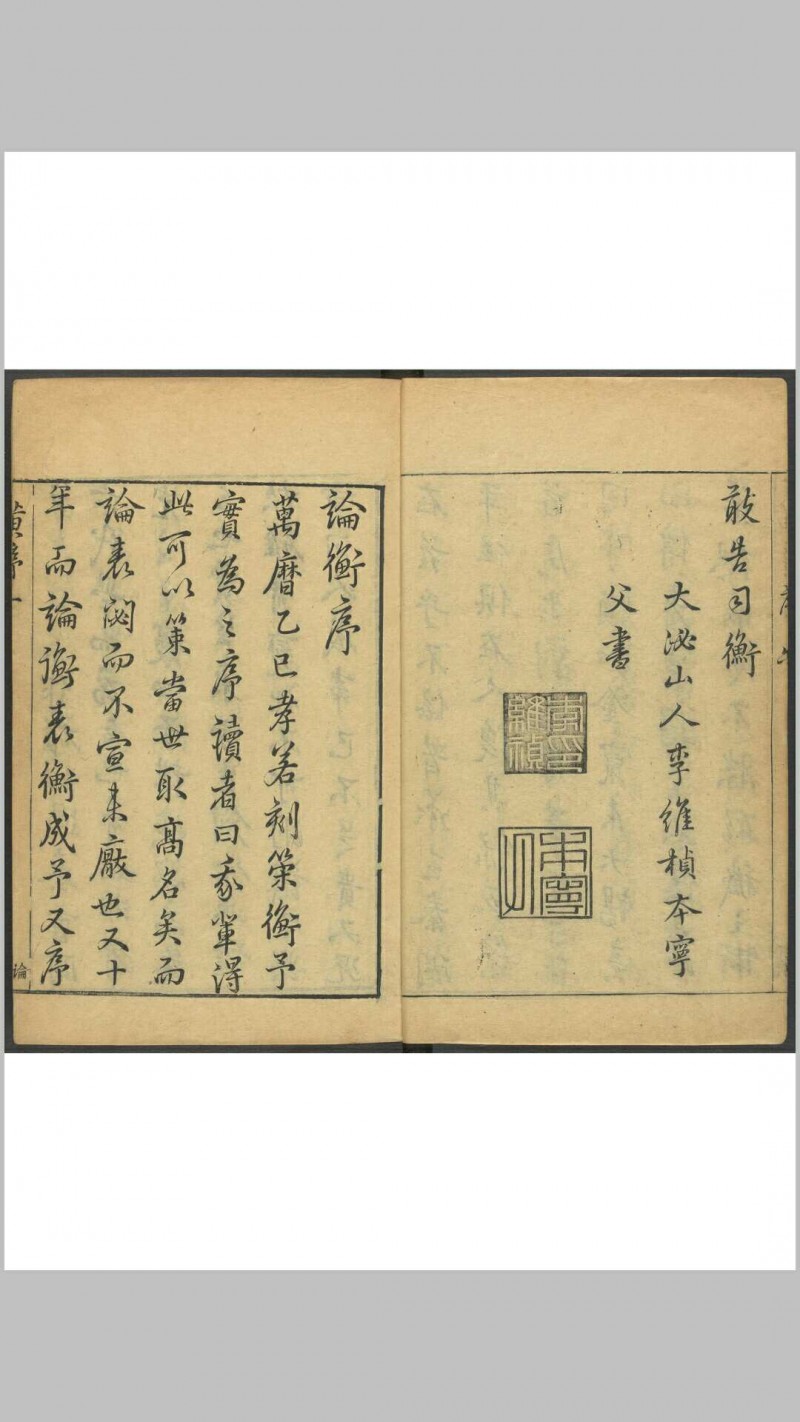 敢告司衡
大泌山人李維楨本寧
父書
李維楨印
本寧
論衡序
萬曆乙巳孝若刻策衡予
實為之序讀者曰我輩得
此可以策當世取高名矣而
論表閟而不宣未厰也又十
年而論衡表衡成予又序
黃序
一
論